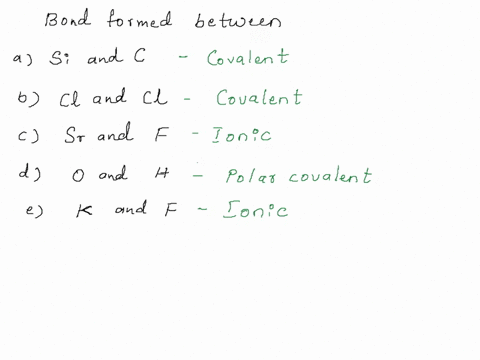 Bond formed between
a) Si and C - Covalent
b) Cl and Cl - Covalent
c) Sr and F - Ionic
d) O and H - Polar covalent
e) K and F - Ionic